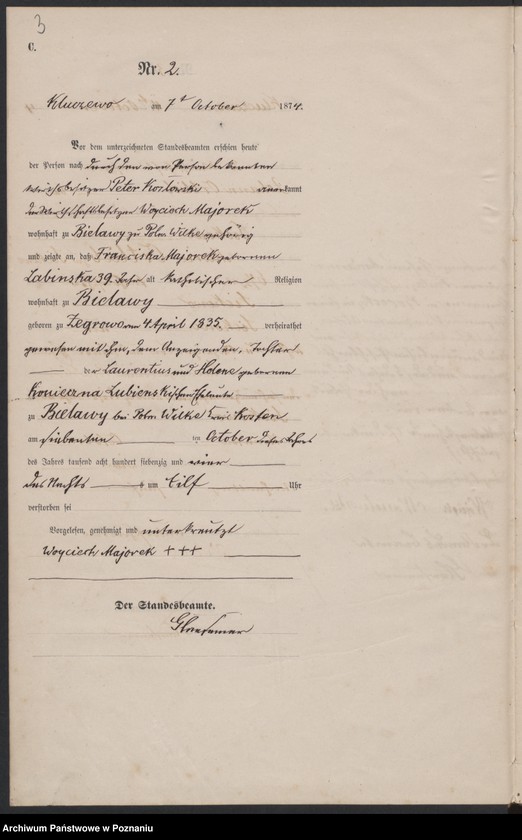 3
C.
Nr. 2.
Kluczewo am 7t October 1874.
Vor dem unterzeichneten Standesbeamten erschien heute
der Person nach durch den von Person bekannten
Peter Kozlowski anerkannt
der Wirthschaftsbesitzer Woyciech Majorek
wohnhaft zu Bielawy zu Poln. Wilke gehörig
und zeigte an, daß Franciska Majorek geborenen
Labinska 39. Jahr alt katholischer Religion
wohnhaft zu Bielawy
geboren zu Zegrowo am 4 April 1835. verheirathet
gewesen mit ihm, dem Anzeigenden, Tochter
der Laurentius und Helene geborenen
Konieczna Lubienskischen Eheleute
zu Bielawy bei Poln. Wilke Kosten
am siebenten im October dieses Jahres
des Jahres tausend acht hundert siebenzig und vier
des Nachts um Eilf Uhr
verstorben sei
Vorgelesen, genehmigt und unterkreutzt
Woyciech Majorek +++
Der Standesbeamte.
Archiwum Państwowe w Poznaniu